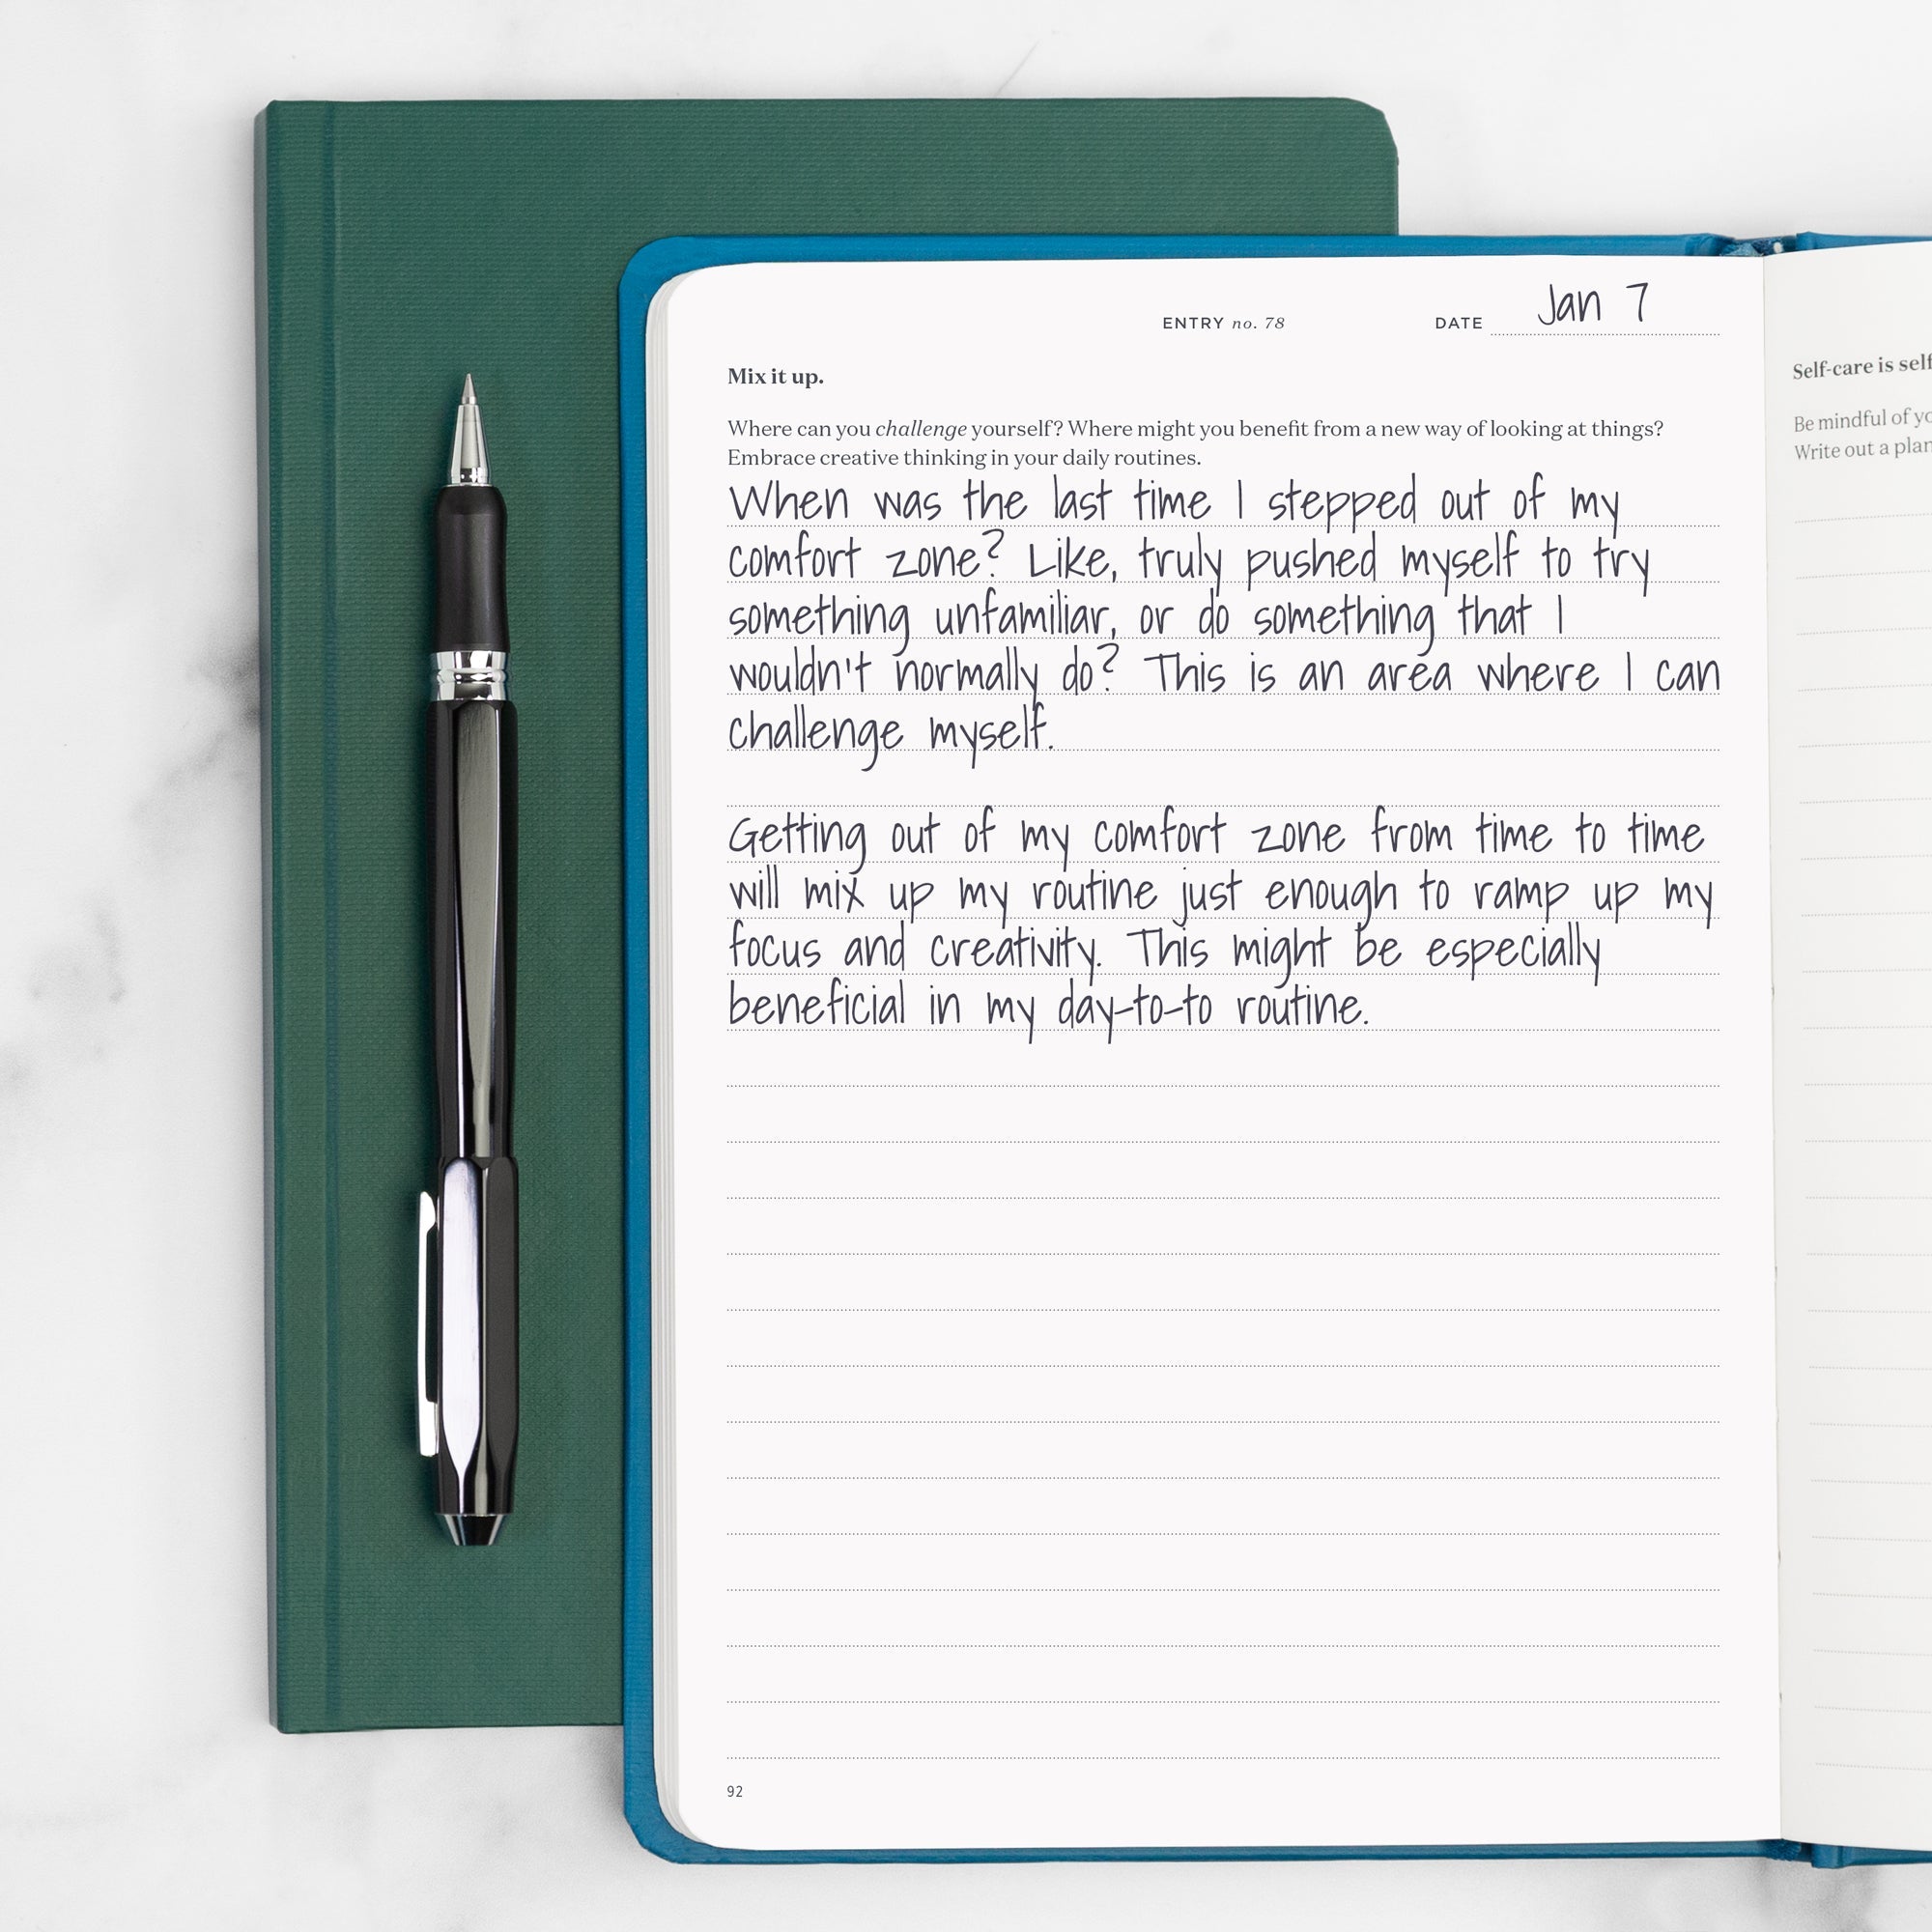 ENTRY no. 78
DATE Jan 7
Mix it up.
Where can you challenge yourself? Where might you benefit from a new way of looking at things?
Embrace creative thinking in your daily routines.
When was the last time I stepped out of my
comfort zone? Like, truly pushed myself to try
something unfamiliar, or do something that I
wouldn't normally do? This is an area where I can
challenge myself.
Getting out of my comfort zone from time to time
will mix up my routine just enough to ramp up my
focus and creativity. This might be especially
beneficial in my day-to-to routine.
92
Self-care is
Be mindful of
Write out a plan